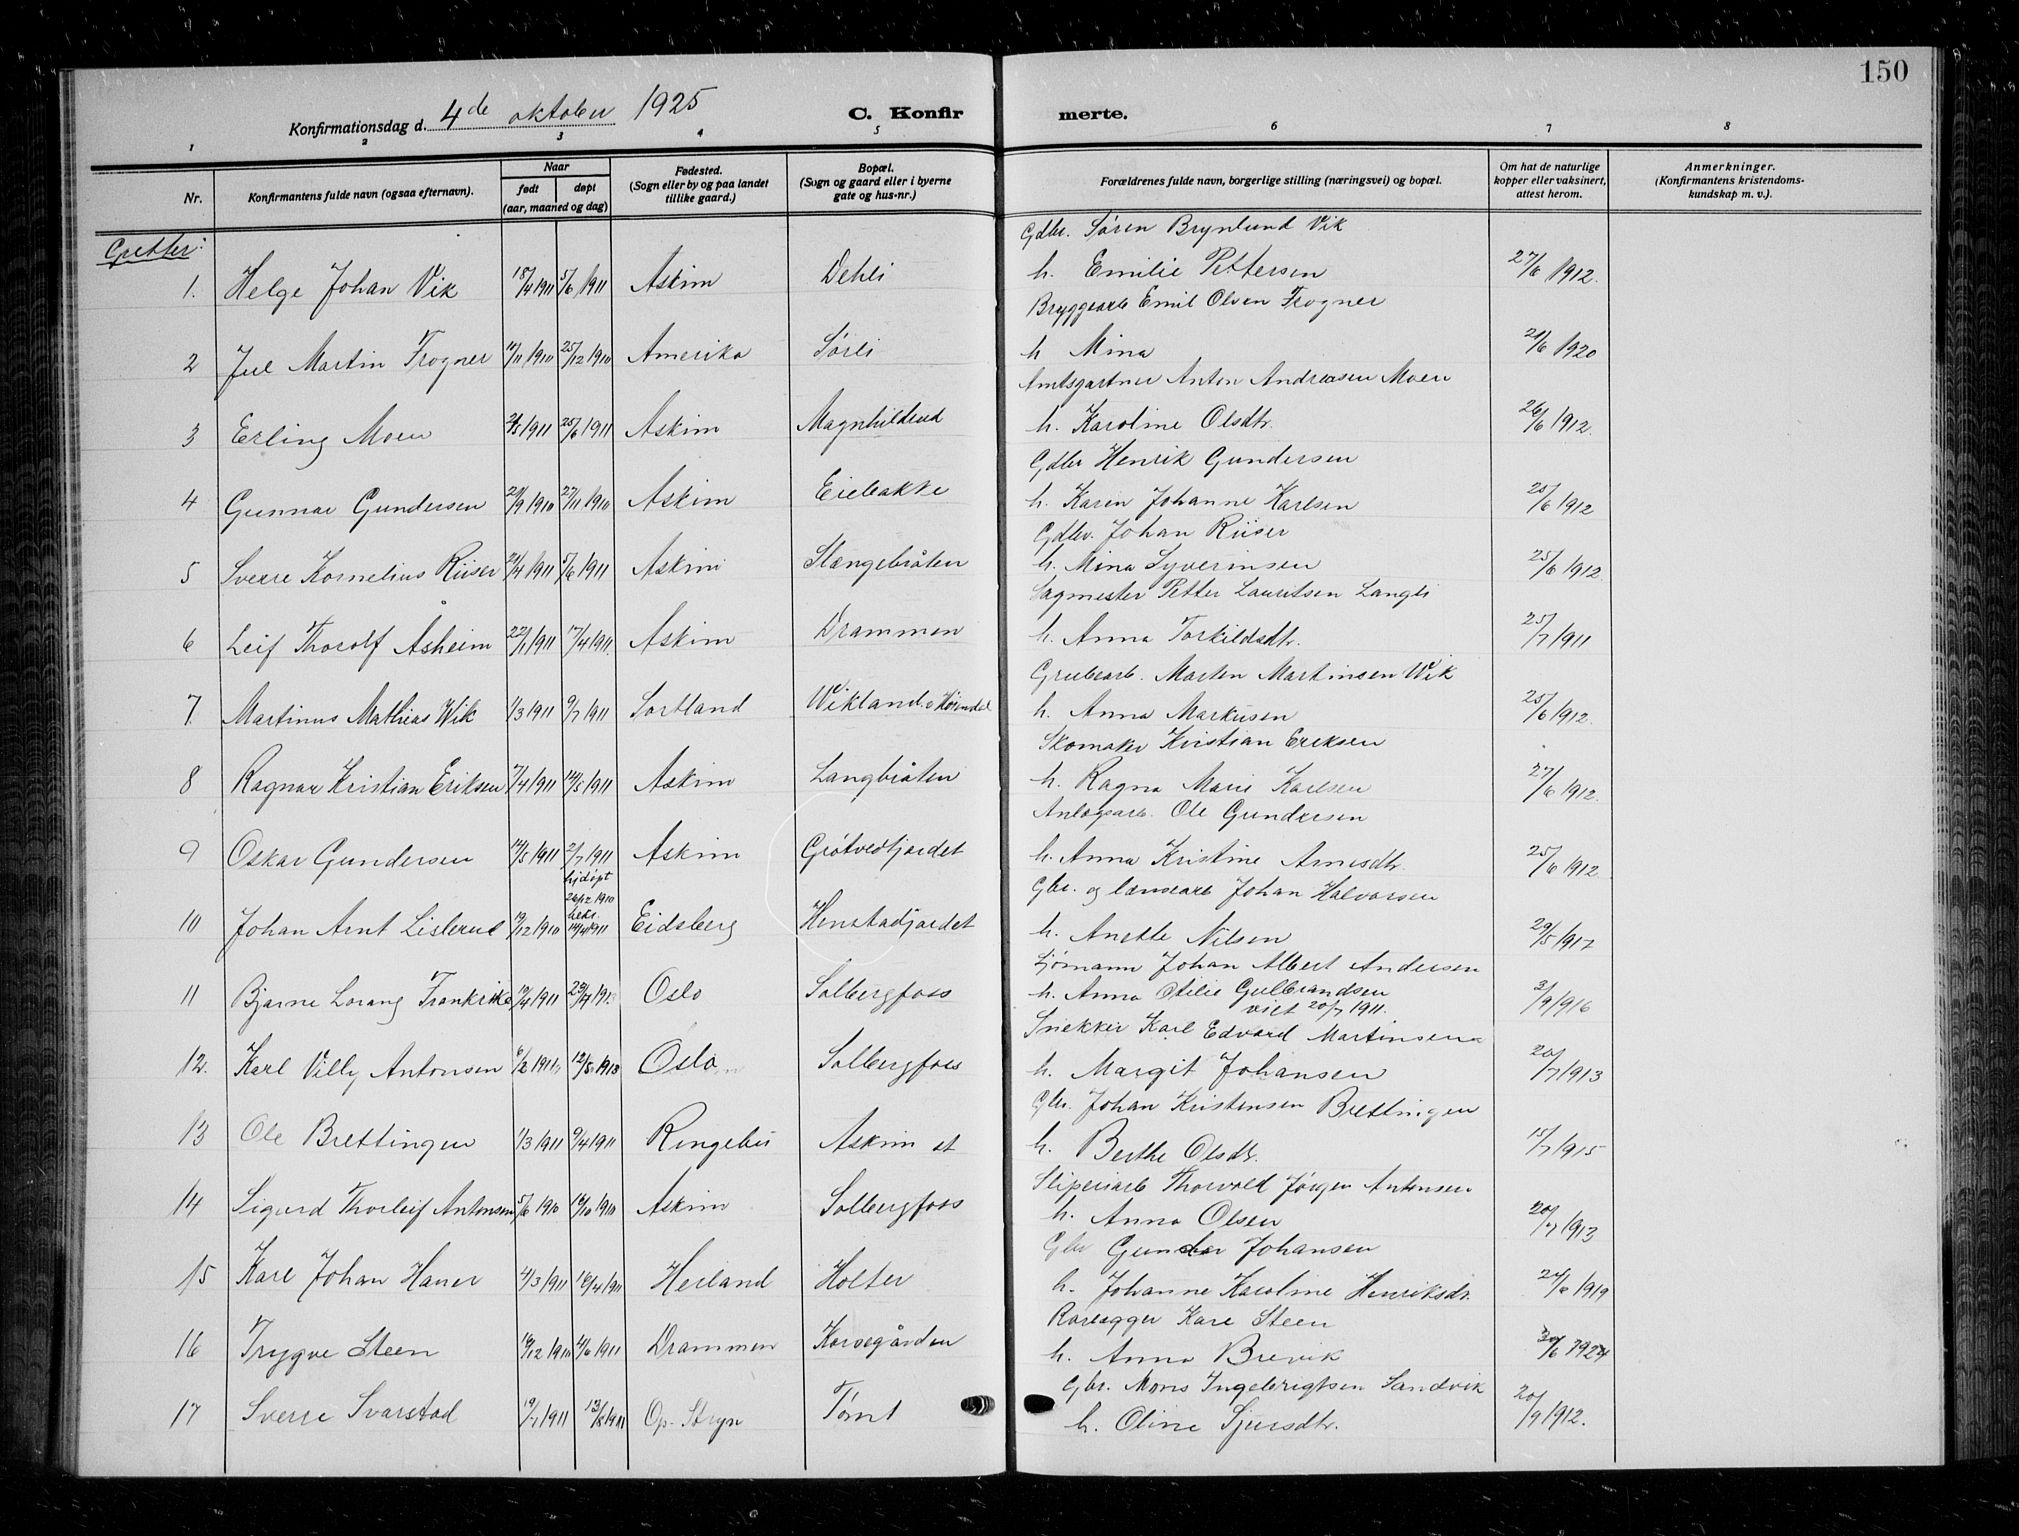 150
Konfirmationsdag d. 4de oktober 1925 C. Konfirmerte.
1 2 3 4 5 6 7 8
Nr. Konfirmantens fulde navn (ogsaa efternavn). Naar født døpt (aar, maaned og dag) Fødested. (Sogn eller by og paa landet tillike gaard.) Bopæl. (Sogn og gaard eller i byerne gate og hus-nr.) Forældrenes fulde navn, borgerlige stilling (næringsvei) og bopæl. Om hat de naturlige kopper eller vaksinert, attest herom. Anmerkninger. (Konfirmantens kristendoms-kundskap m. v.).
Gutter:
Gdbr. Søren Brynlund Vik
1. Helge Johan Vik 18/4 1911 5/6 1911 Askim Dehli h. Emilie Pettersen 27/6 1912.
Bryggearb Emil Olsen Trogner
2 Jul Martin Trogner 10/11 1910 25/12 1910 Amerika Sørli h Mina 21/6 1920
Amtsgartner Anton Andreasen Moen
3 Erling Moen 2/5 1911 25/6 1911 Askim Magnhildrud h. Karoline Olsdtr. 26/6 1912.
Gdbr Henrik Gundersen
4 Gunnar Gundersen 21/9 1910 27/11 1910 Askim Eiebakke h. Karen Johanne Karlsen 25/6 1912
Gdbr. Johan Riiser
5 Sverre Kornelius Riiser 21/4 1911 5/6 1911 Askim Slangebråten h. Mina Syverinsen 25/6 1912
Sagmester Petter Lauritsen Langli
6 Leif Thorolf Åsheim 22/1 1911 17/4 1911. Askim Drammen h. Anna Torkildsdtr. 25/7 1911
Grubearb. Morten Martinsen Wik
7. Martinus Mathias Wik 1/3 1911 9/7 1911 Sortland Wikland. h. Anna Markusen 25/6 1912.
Skomaker Kristian Eriksen
8 Ragnar Kristian Eriksen 7/4 1911 14/5 1911 Askim Langbråten h. Ragna Marie Karlsen 27/6 1912.
Anlægsarb. Ole Gundersen
9 Oskar Gundersen 12/5 1911 2/7 1911 Askim Grøtvedtjordet h. Anna Kristine Arnesdtr. 25/6 1912.
hjdøpt 26/12 1910 bekr. Gbr. og lænsearb Johan Halvorsen
10 Johan Arnt Lislerud 19/12 1910 Eidsberg Henstadjordet h. Anette Nilsen 29/5 1917
Sjømann Johan Albert Andersen
11 Bjarne Lorang Frankrike 19/4 1911 Oslo Solbergfoss h. Anna Otilie Gulbrandsen 3/9 1916
viet 20/7 1911.
Snekker Karl Edvard Martinsen
12. Karl Villy Antonsen 6/2 1911 12/5 1913 Oslo Solbergfoss h. Margit Johansen 20/7 1913
Gbr. Johan Kristensen Brettingen
13 Ole Brettingen 1/3 1911 9/4 1911 Ringebu Askim st h. Berthe Olsdtr. 15/7 1915
Sliperiarb Thorvald Jørgen Antonsen
14 Sigurd Thorleif Antonsen 5/6 1910 16/10 1910 Askim Solbergfoss h. Anna Olsen 20/7 1913
Gbr Gunder Johansen
15 Karl Johan Haner 4/3 1911 16/4 1911 Herland Holter h. Johanne Karoline Henriksdr. 24/6 1919
Rørlægger Kare Steen
16 Trygve Steen 19/12 1910 4/6 1911 Drammen Korsegården h. Anna Brevik 30/6 1924
Gbr. Mons Ingebrigtsen Sandvik
17 Sverre Svarstad 19/7 1911 13/8 1911 Op. Stryn Tømt h. Oline Sjursdtr. 20/9 1912.